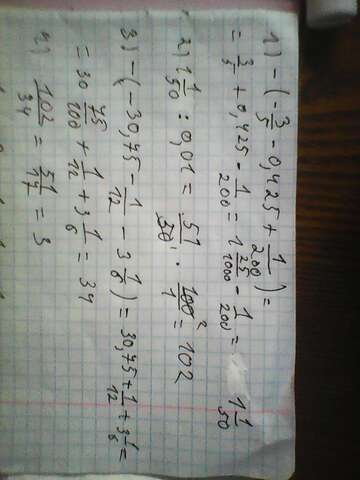 1) -(-3/5 - 0,425 + 1/200) =
= 3/5 + 0,425 - 1/200 = 1 25/1000 - 1/200 = 1 1/50
2) 1 1/50 : 0,01 = 51/50 · 100²/1 = 102
3) -(-30,75 - 1/12 - 3 1/6) = 30,75 + 1/12 + 3 1/6 =
= 30 75/100 + 1/12 + 3 1/6 = 34
4) 102/34 = 51/17 = 3